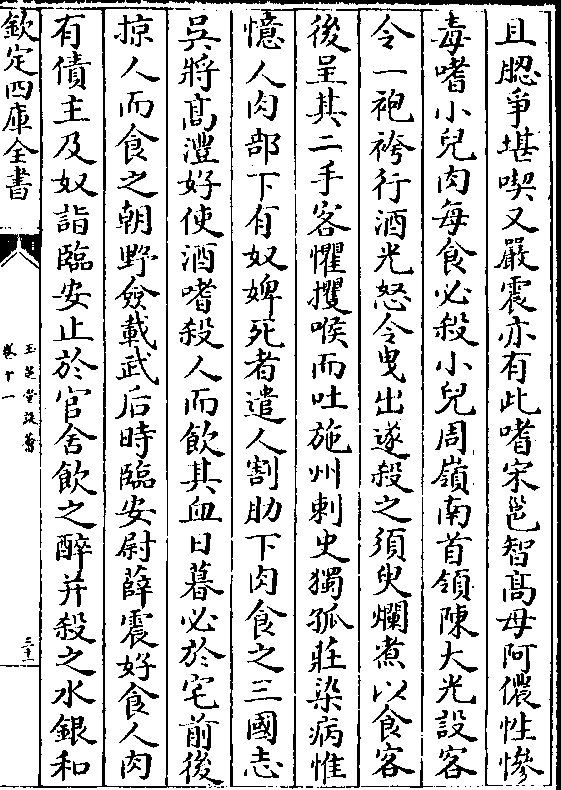 且腮爭堪喫又嚴震亦有此嗜宋邕智高母阿儂性慘
毒嗜小兒肉每食必殺小兒周嶺南首領陳大光設客
令一袍袴行酒光怒令曳出遂殺之須臾爛煮以食客
後呈其二手客懼攫喉而吐施州刺史獨孤莊染病惟
憶人肉部下有奴婢死者遣人割肋下肉食之三國志
吳將高澧好使酒嗜殺人而飲其血日暮必於宅前後
掠人而食之朝野僉載武后時臨安尉薛震好食人肉
有債主及奴詣臨安止於官舍飲之醉并殺之水銀和
欽定四庫全書
玉芝堂談薈
卷十一
三十